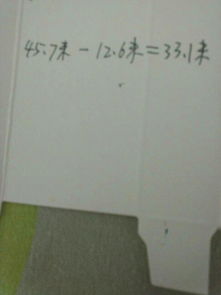 45.7米-12.6米=33.1米